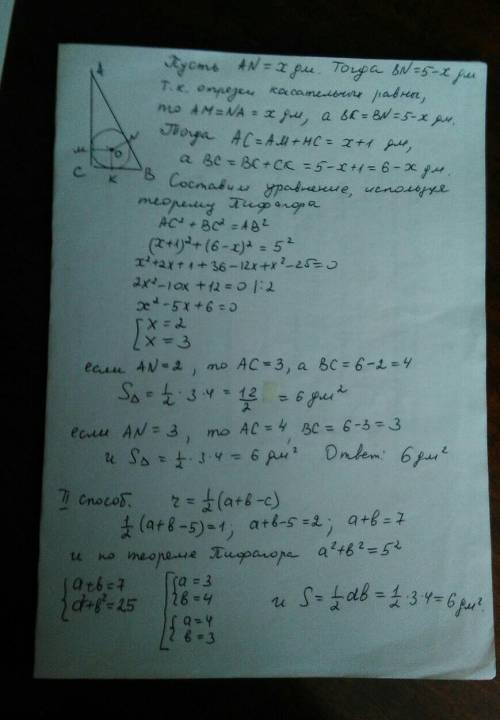 A
N
O
M
C
K
B
Пусть AN = x дм. Тогда BN = 5-x дм
т.к. отрезки касательных равны,
то AM=NA = x дм, а BK=BN=5-x дм.
Тогда AC=AM+MC = x+1 дм,
а BC=BK+CK=5-x+1=6-x дм.
Составим уравнение, используя
теорему Пифагора
AC²+BC²=AB²
(x+1)²+(6-x)²=5²
x²+2x+1+36-12x+x²-25=0
2x²-10x+12=0 |:2
x²-5x+6=0
[ x=2
x=3
если AN=2, то AC=3, а BC=6-2=4
S△ = 1/2 · 3 · 4 = 12/2 = 6 дм²
если AN=3, то AC=4, BC=6-3=3
и S△ = 1/2 · 3 · 4 = 6 дм² Ответ: 6 дм²
II способ. r = 1/2 (a+b-c)
1/2 (a+b-5)=1; a+b-5=2; a+b=7
и по теореме Пифагора a²+b²=5²
{ a+b=7
a²+b²=25
[ { a=3
b=4
{ a=4
b=3
и S = 1/2 ab = 1/2 · 3 · 4 = 6 дм².